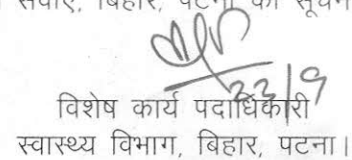 सेवाएँ, बिहार, पटना को सूचन
22/9
विशेष कार्य पदाधिकारी
स्वास्थ्य विभाग, बिहार, पटना।